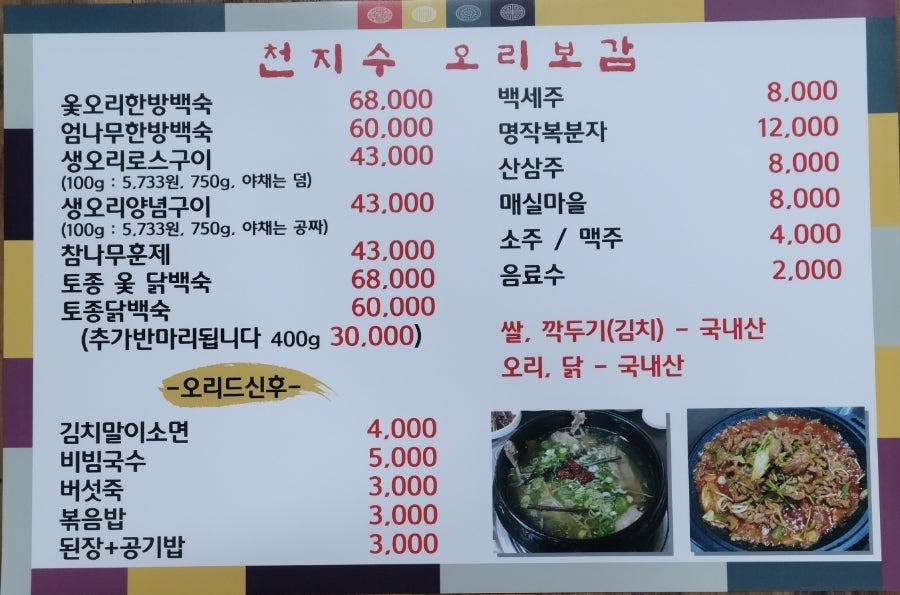 천지수 오리보감
옻오리한방백숙 68,000
엄나무한방백숙 60,000
생오리로스구이 43,000
(100g : 5,733원, 750g, 야채는 덤)
생오리양념구이 43,000
(100g : 5,733원, 750g, 야채는 공짜)
참나무훈제 43,000
토종 옻 닭백숙 68,000
토종닭백숙 60,000
(추가반마리됩니다 400g 30,000)
-오리드신후-
김치말이소면 4,000
비빔국수 5,000
버섯죽 3,000
볶음밥 3,000
된장+공기밥 3,000
백세주 8,000
명작복분자 12,000
산삼주 8,000
매실마을 8,000
소주 / 맥주 4,000
음료수 2,000
쌀, 깍두기(김치) - 국내산
오리, 닭 - 국내산